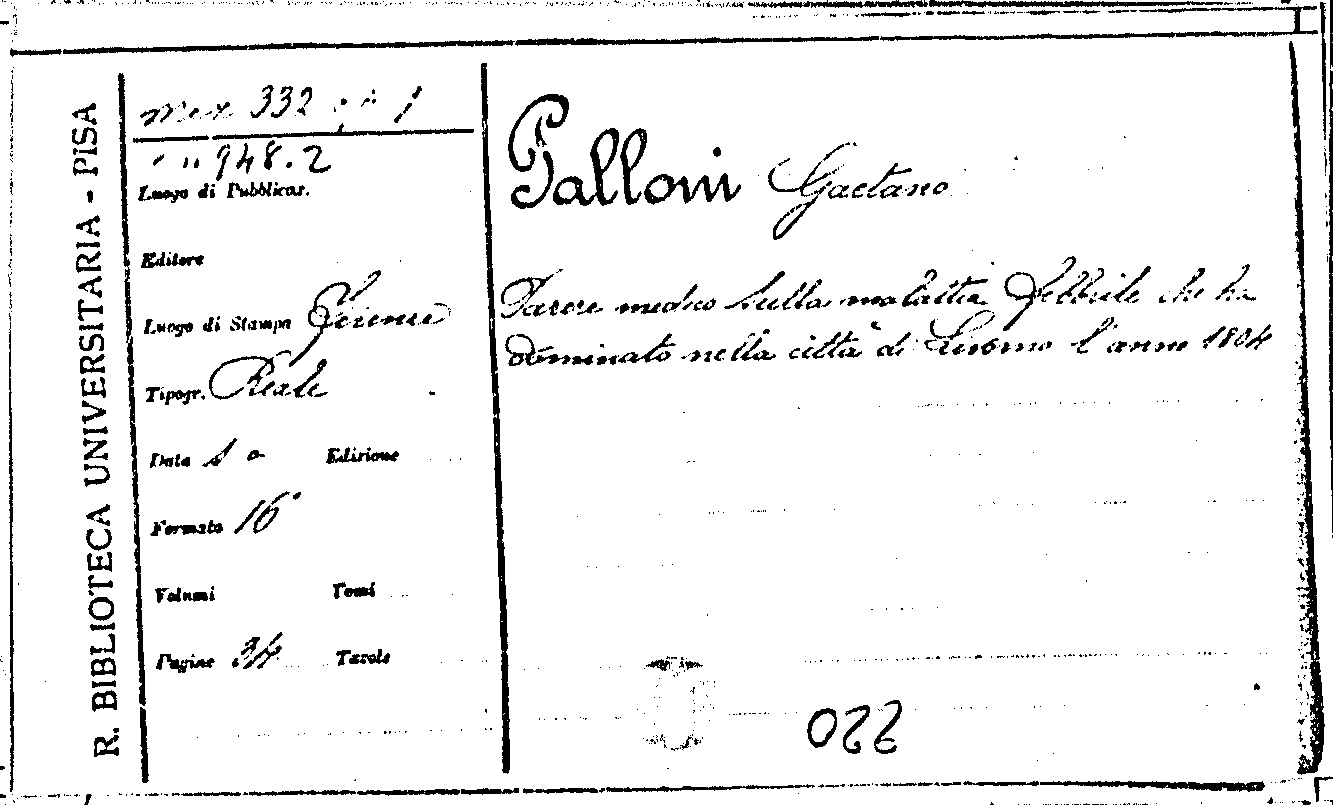 R. BIBLIOTECA UNIVERSITARIA - PISA
Misc 332 1
948.2
Luogo di Pubblicaz.
Editore
Luogo di Stampa Firenze
Tipogr. Reale
Data s a Edizione
Formato 16°
Volumi Tomi
Pagine 34 Tavole
Palloni Gaetano
Parere medico sulla malattia febbrile che ha
dominato nella città di Livorno l'anno 1804
022